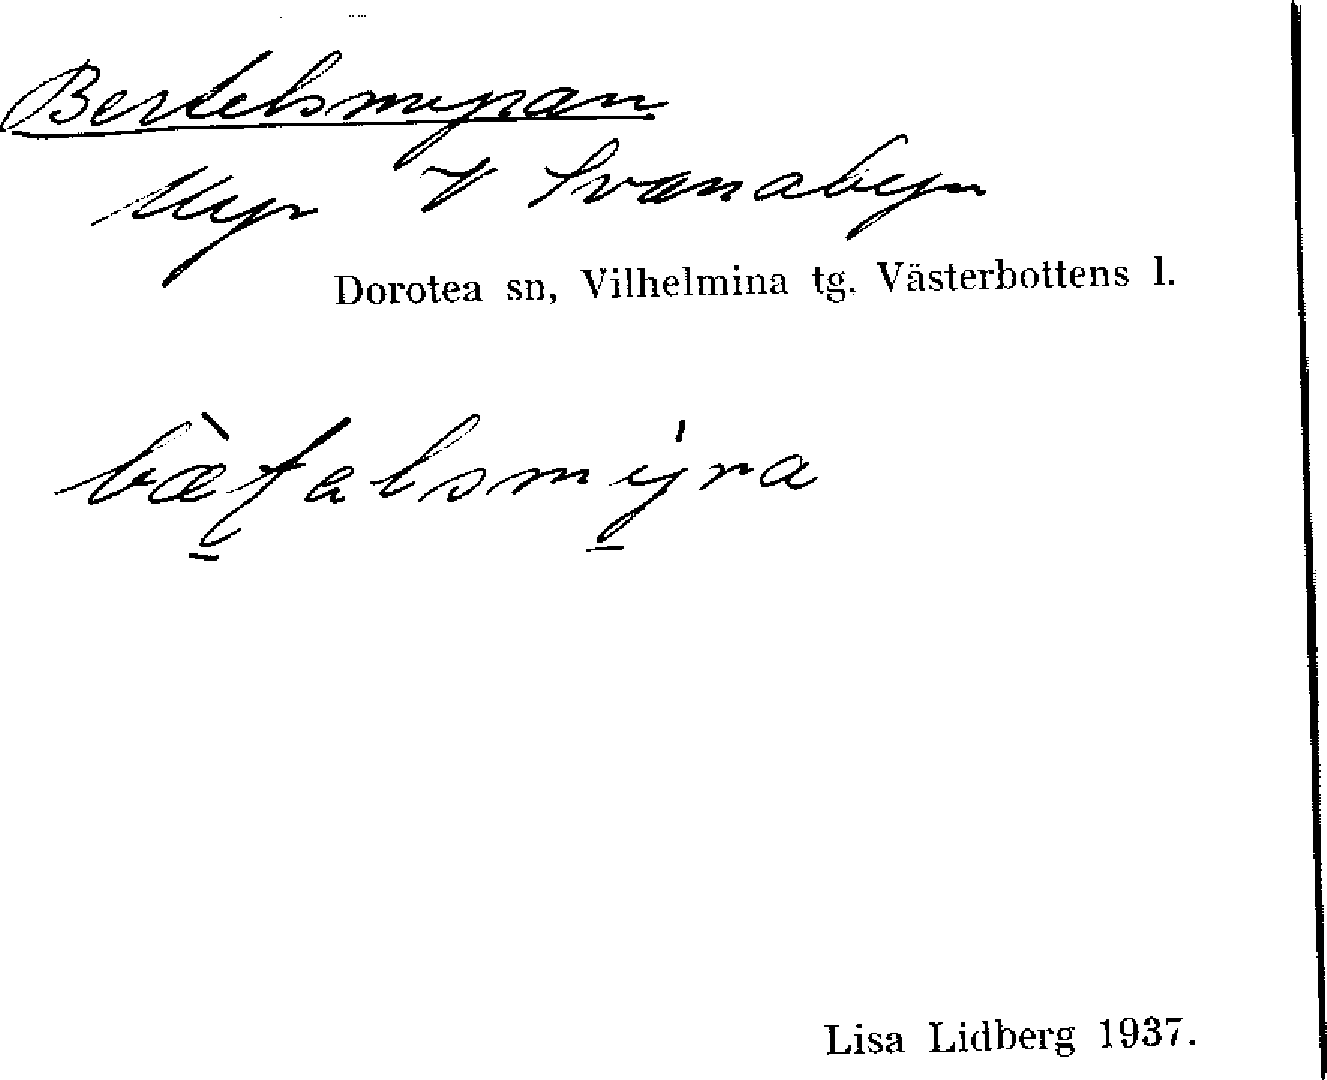 Bertelsmyran
Myr V Svanabyn
Dorotea sn, Vilhelmina tg. Västerbottens l.
Lisa Lidberg 1937.